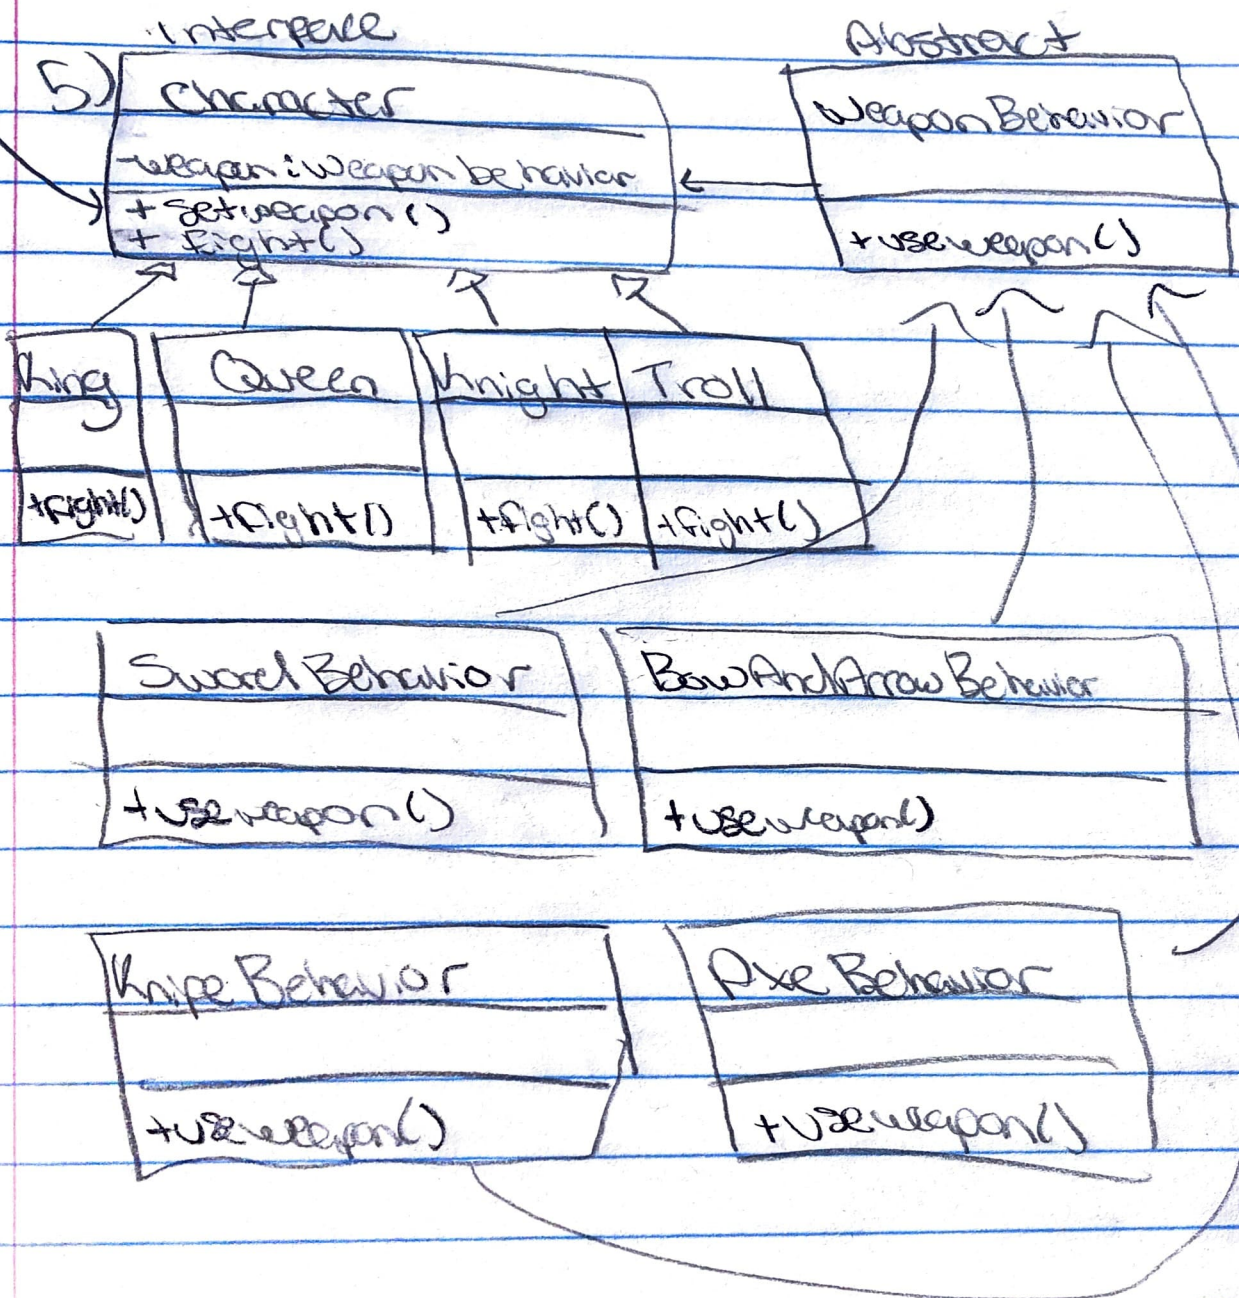 Interface
Abstract
5)
Character
-weapon: Weaponbehavior
+ setweapon()
+ fight()
WeaponBehavior
+useweapon()
King
+fight()
Queen
+fight()
Knight
+fight()
Troll
+fight()
SwordBehavior
+useweapon()
BowAndArrowBehavior
+useweapon()
KnifeBehavior
+useweapon()
AxeBehavior
+useweapon()